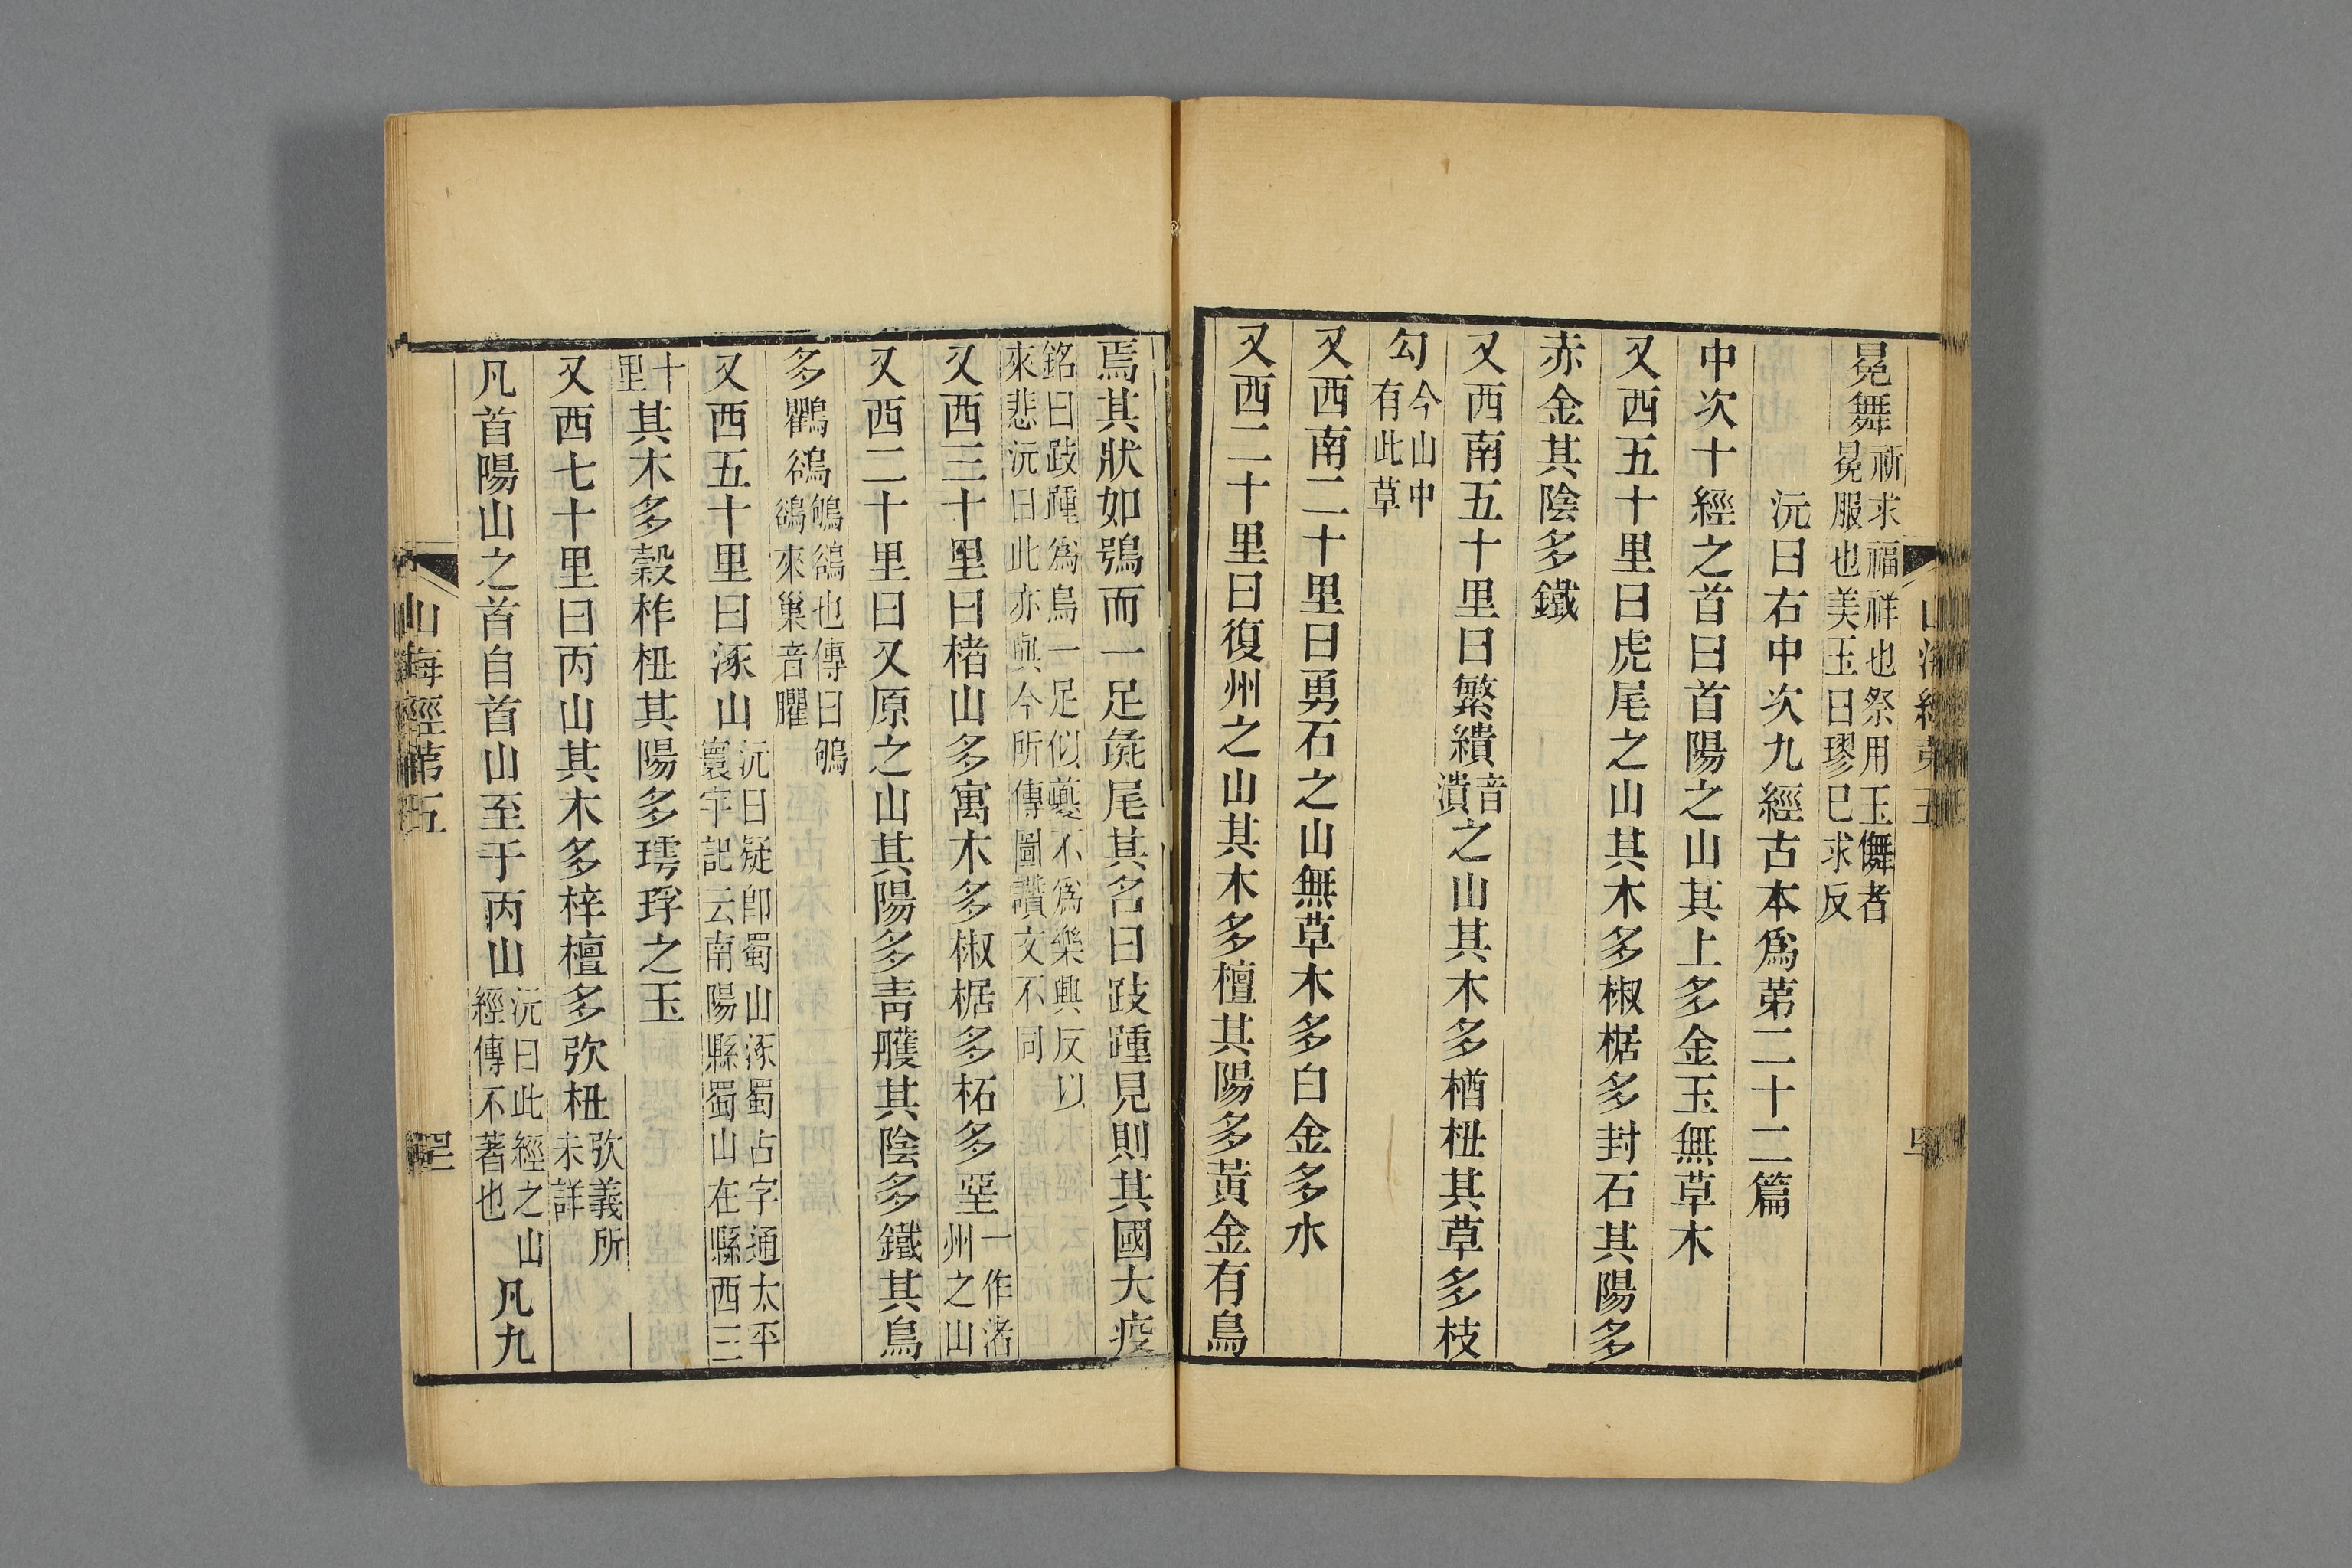 冕舞祈求福祥也祭用玉儛者冕服也美玉曰璆巳求反
沅曰右中次九經古本爲第二十二篇
中次十經之首曰首陽之山其上多金玉無草木
又西五十里曰虎尾之山其木多椒椐多封石其陽多
赤金其陰多鐵
又西南五十里曰繁繢音潰之山其木多楢杻其草多枝
勾今山中有此草
又西南二十里曰勇石之山無草木多白金多水
又西二十里曰復州之山其木多檀其陽多黃金有鳥
焉其狀如鴞而一足彘尾其名曰跂踵見則其國大疫
銘曰跂踵爲鳥一足似夔不爲樂興反以來悲沅曰此亦與今所傳圖讚文不同
又西三十里曰楮山多寓木多椒椐多柘多堊一作渚州之山
又西二十里曰又原之山其陽多靑雘其陰多鐵其鳥
多鸜鵒鴝鵒也傳曰鴝鵒來巢音臞
又西五十里曰涿山沅曰疑卽蜀山涿蜀占字通太平寰宇記云南陽縣蜀山在縣西三
十里其木多榖柞杻其陽多㻬琈之玉
又西七十里曰丙山其木多梓檀多弞杻弞義所未詳
凡首陽山之首自首山至于丙山沅曰此經之山經傳不著也凡九
山海經第五